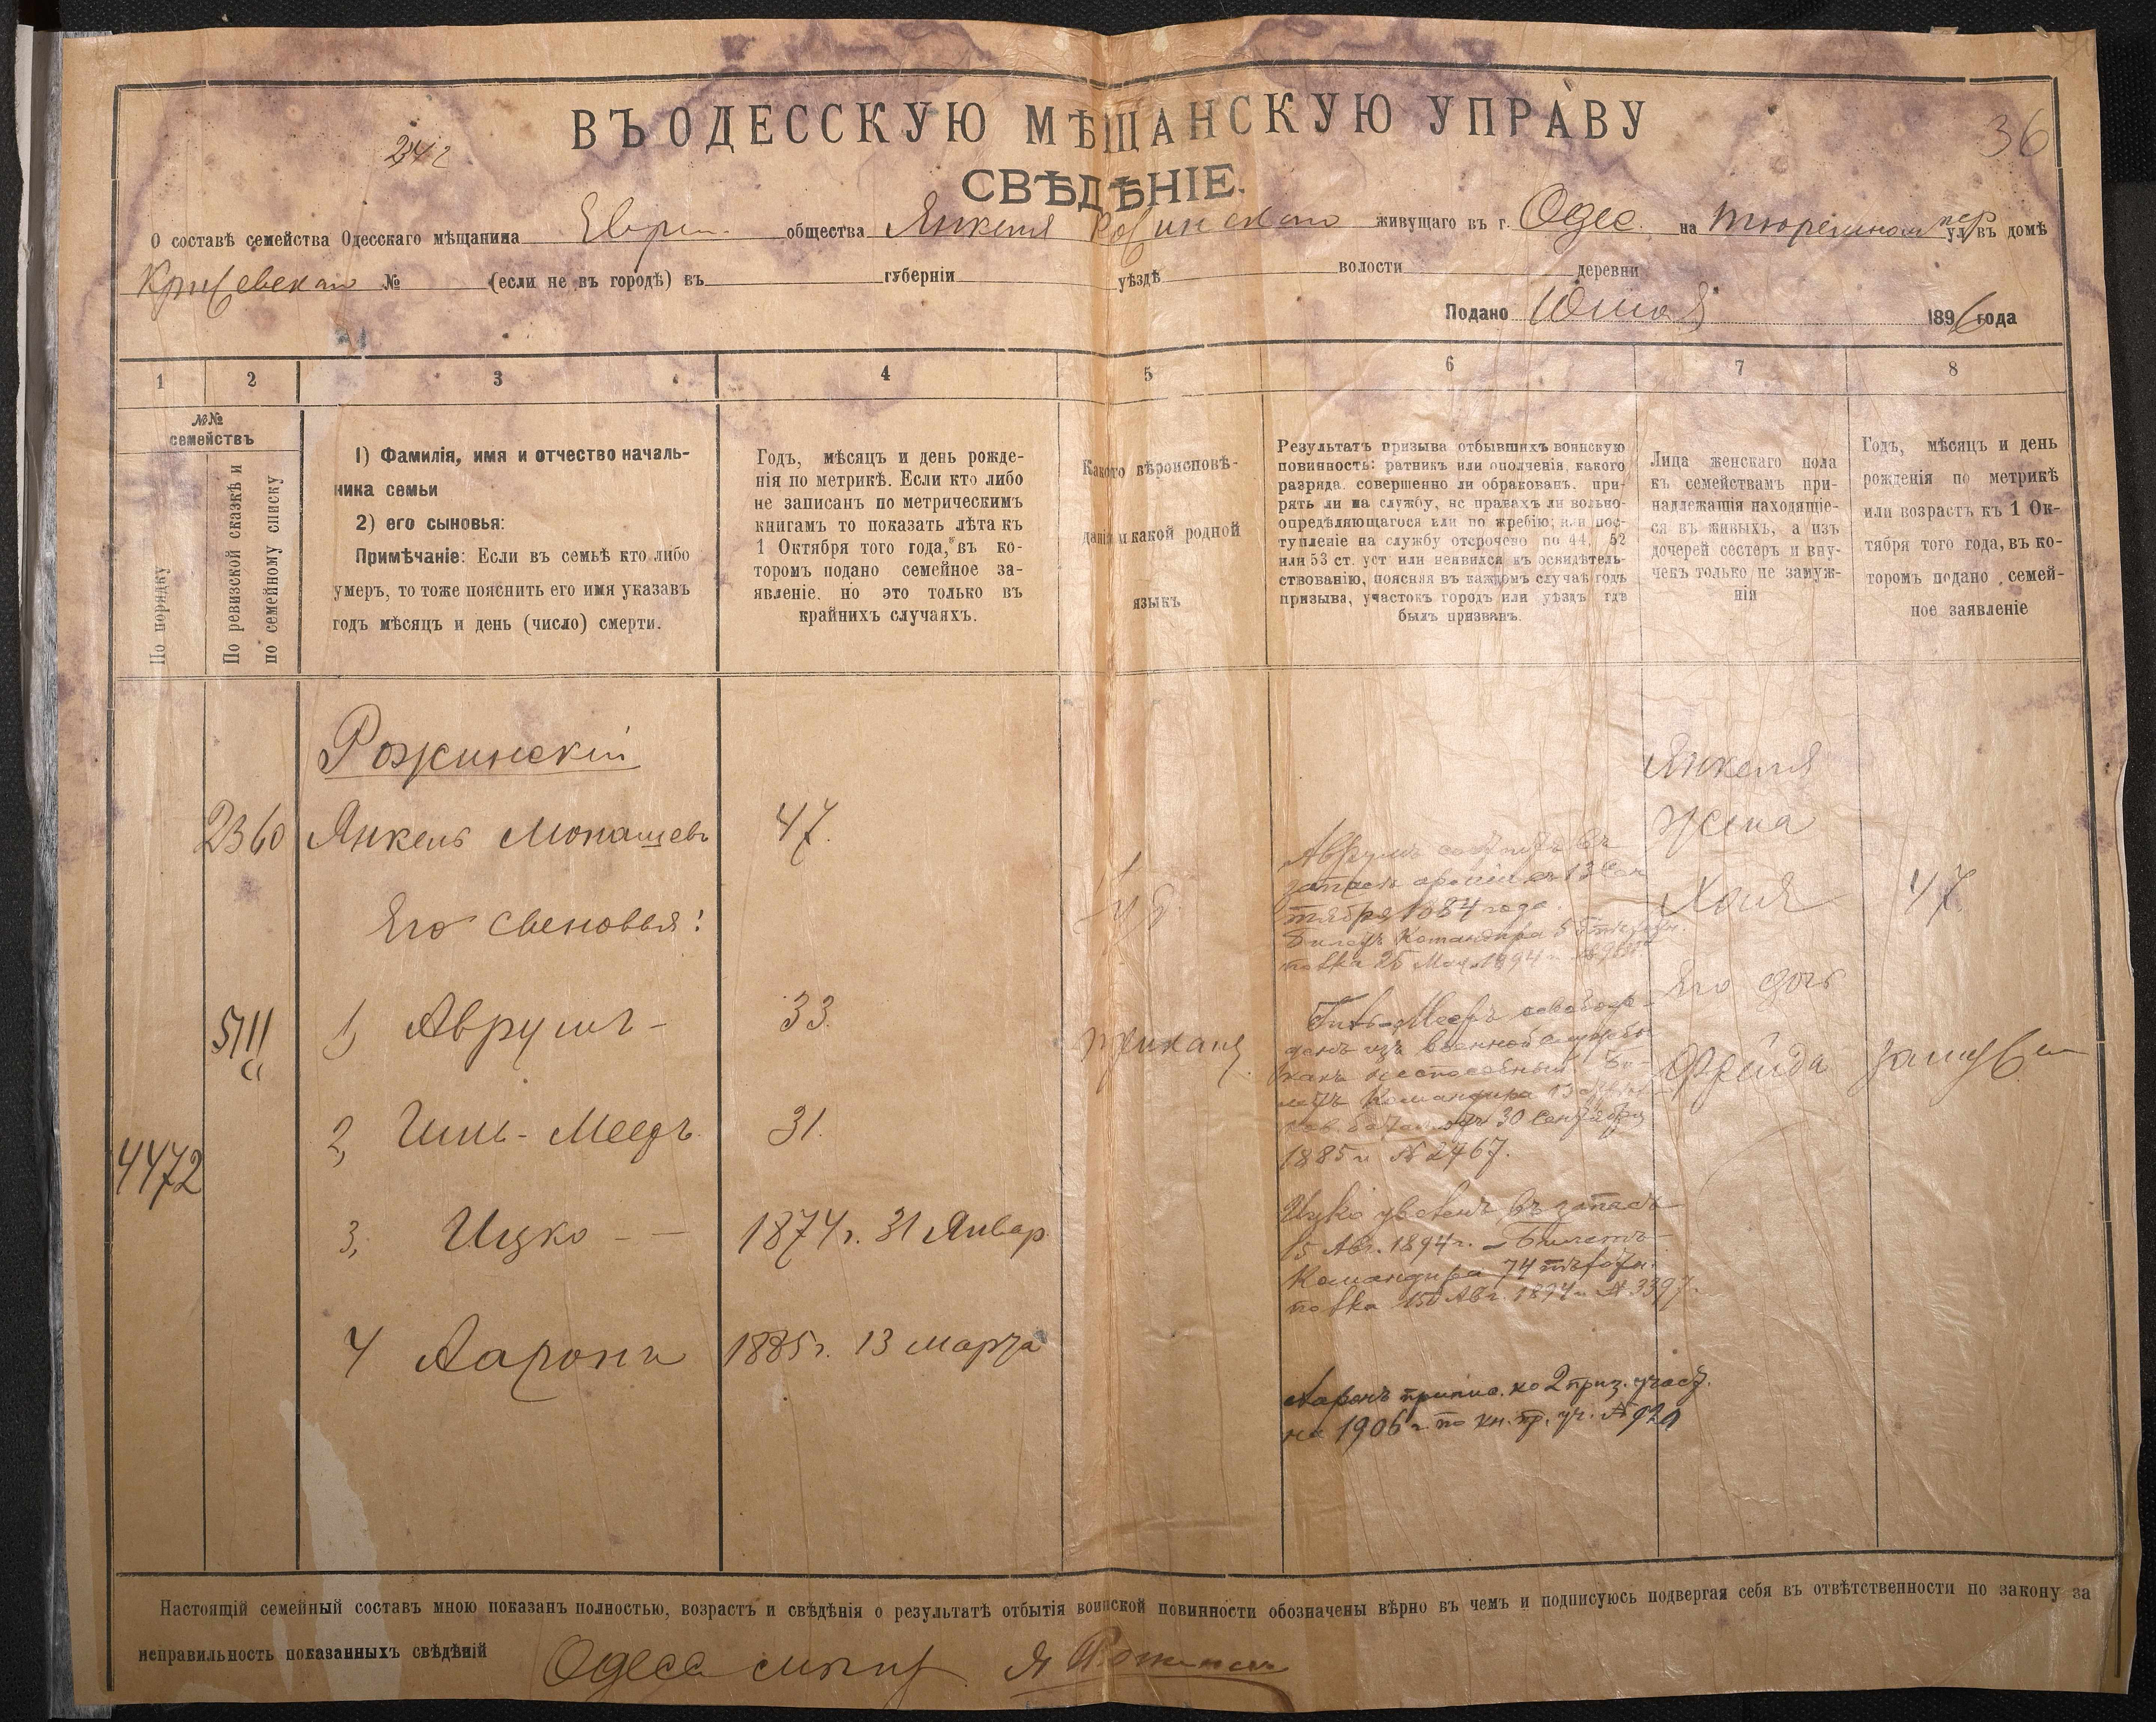 ВЪ ОДЕССКУЮ МѢЩАНСКУЮ УПРАВУ
36
СВѢДѢНІЕ.
О составѣ семейства Одесскаго мѣщанина Еврей. общества Янкеля живущаго въ г. Одес. на Тюремном пер ул. въ домѣ
№ (если не въ городѣ) въ губерніи уѣздѣ волости деревни
Подано 1896 года
1 2 3 4 5 6 7 8
№№ семействъ
По порядку
По ревизской сказкѣ и по семейному списку
1) Фамилія, имя и отчество началь-
ника семьи
2) его сыновья:
Примѣчаніе: Если въ семьѣ кто либо
умеръ, то тоже пояснить его имя указавъ
годъ мѣсяцъ и день (число) смерти.
Годъ, мѣсяцъ и день рожде-
нія по метрикѣ. Если кто либо
не записанъ по метрическимъ
книгамъ то показать лѣта къ
1 Октября того года, въ ко-
торомъ подано семейное за-
явленіе. но это только въ
крайнихъ случаяхъ.
Какого вѣроисповѣ-
данія и какой родной
языкъ
Результатъ призыва отбывшихъ воинскую
повинность: ратникъ или ополченія, какого
разряда. совершенно ли обракованъ. при-
рять ли на службу, нс правахъ ли вольно-
опредѣляющагося или по жребію; или пос-
тупленіе на службу отсрочено по 44, 52
или 53 ст. уст или неявился къ освидѣтель-
ствованію, поясняя въ каждомъ случаѣ годъ
призыва, участокъ городъ или уѣздъ гдѣ
былъ призванъ.
Лица женскаго пола
къ семействамъ при-
надлежащія находящіе-
ся въ живыхъ, а изъ
дочерей сестеръ и вну-
чекъ только не замуж-
нія
Годъ, мѣсяцъ и день
рожденія по метрикѣ
или возрастъ къ 1 Ок-
тября того года, въ ко-
торомъ подано семей-
ное заявленіе
Рожинскій
2360 Янкель Монашевъ 47.
Его сыновья:
5711 1, Аврумъ - 33.
2, Мееръ 31.
4472
3, Ицко - - 1874 г. 31 Январ
4 Ааронъ 1885 г. 13 марта
Аврумъ состоитъ въ
запасѣ арміи съ 13 Сен
тября 1884 года.
Билетъ Командира
1894 г.
Мееръ освобож-
денъ изъ военной службы
какъ неспособный Би-
летъ Командира
30 Сентября
1885 г. № 2467.
Ицко уволенъ въ запасъ
15 Авг. 1894 г. - Билетъ
Командира 74
15 Авг. 1894 г. № 3397.
Ааронъ припис. ко 2 приз. участ.
на 1906 г. по кн. пр. уч. №
Янкеля
жена
Хая 47
Его дочь
Фрейда замуж
Настоящій семейный составъ мною показанъ полностью, возрастъ и свѣдѣнія о результатѣ отбытія воинской повинности обозначены вѣрно въ чемъ и подписуюсь подвергая себя въ отвѣтственности по закону за
неправильность показанныхъ свѣдѣній Одеса Я